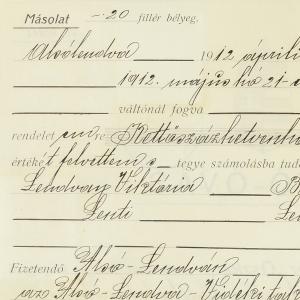 Másolat -.20 fillér bélyeg.
Alsólendva 1912 április
1912. május hó 21-
váltónál fogva
rendelet em re Kettőszázhetvenh
értéke t felvettem s tegye számolásba tud
Lendvay Viktória B
Lenti Le
Fizetendő Alsó-Lendván
az Alsó-Lendva-Vidéki tak